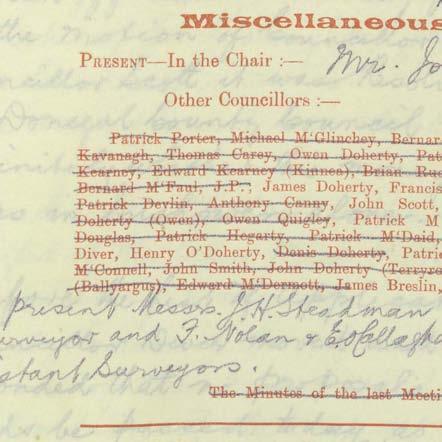 Miscellaneous
PRESENT—In the Chair :— Mr. Jo
Other Councillors :—
Patrick Porter, Michael M'Glinchey, Bernar
Kavanagh, Thomas Carey, Owen Doherty, Pat
Kearney, Edward Kearney (Kinnea), Brian Rud
Bernard M'Faul, J.P., James Doherty, Francis
Patrick Devlin, Anthony Canny, John Scott,
Doherty (Owen), Owen Quigley, Patrick M
Douglas, Patrick Hegarty, Patrick M'Daid,
Diver, Henry O'Doherty, Denis Doherty, Patric
M'Connell, John Smith, John Doherty (Terryro
(Ballyargus), Edward M'Dermott, James Breslin,
present Messrs. J. H. Steadman
urveyor and F. Nolan & E. O'Callagha
istant Surveyors.
The Minutes of the last Meeti